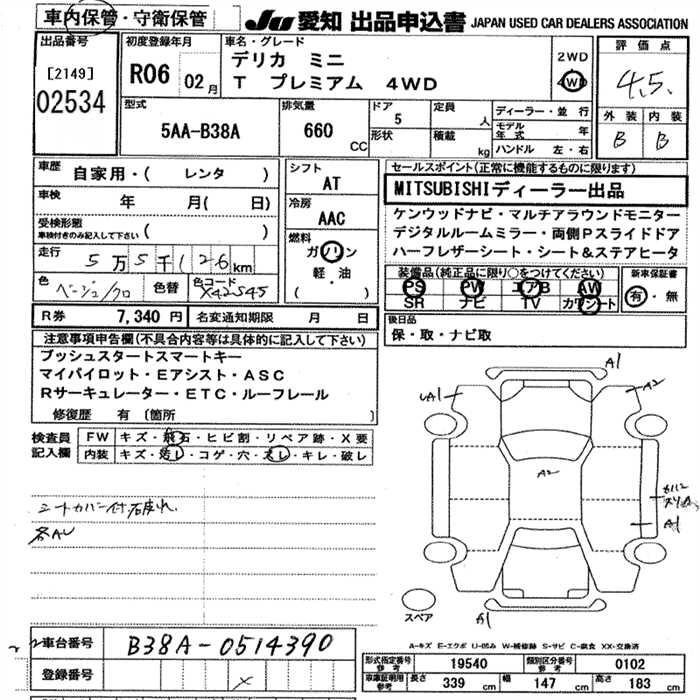 車内保管・守衛保管 JU 愛知 出品申込書 JAPAN USED CAR DEALERS ASSOCIATION
出品番号 [2149] 02534
初度登録年月 R06 02月
車名・グレード デリカ ミニ
T プレミアム 4WD
2WD 4WD
評価点 4.5.
外装 B 内装 B
型式 5AA-B38A
排気量 660 CC
ドア 5 形状
定員 人 積載 kg
ディーラー・並行
モデル年式 年
ハンドル 左・右
車歴 自家用・( レンタ )
車検 年 月( 日)
受検形態 車検付きのみ記入して下さい ( )
走行 5万5千126km
色 ベージュ/クロ 色替 色コード X42S45
シフト AT
冷房 AAC
燃料 ガソリン
軽・油
( )
セールスポイント(正常に機能するものに限ります)
MITSUBISHIディーラー出品
ケンウッドナビ・マルチアラウンドモニター
デジタルルームミラー・両側Pスライドドア
ハーフレザーシート・シート&ステアヒータ
装備品(純正品に限り○をつけてください) 新車保証書
PS PW エアB AW 有・無
SR ナビ TV カワシート
R券 7,340円 名変通知期限 月 日
後日品
保・取・ナビ取
注意事項申告欄(不具合内容等は具体的に記入して下さい)
プッシュスタートスマートキー
マイパイロット・Eアシスト・ASC
Rサーキュレーター・ETC・ルーフレール
修復歴 有 〔箇所 〕
検査員記入欄 FW キズ・飛石・ヒビ割・リペア跡・X要
内装 キズ・汚レ・コゲ・穴・スレ・キレ・破レ
シートカバー付
各AU
A1
A2
A1
A2
A1
スリ
スペア
A1
A-キズ E-エクボ U-凹み W-補修跡 S-サビ C-腐食 XX-交換済
車台番号 B38A-0514390
登録番号
形式指定番号 参考 19540 類別区分番号 参考 0102
車庫証明用 参考 長さ 339 cm 幅 147 cm 高さ 183 cm